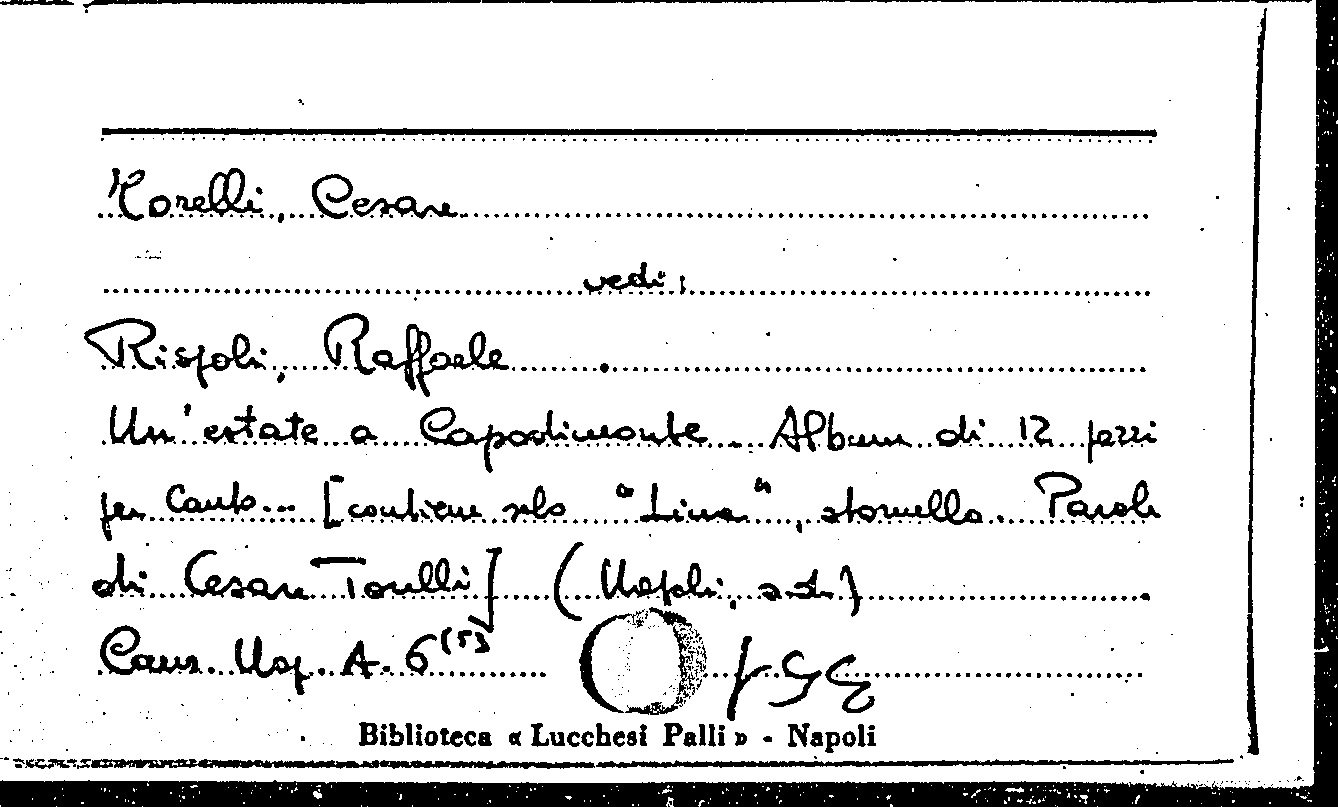 Torelli, Cesare
vedi:
Rispoli, Raffaele
Un'estate a Capodimonte. Album di 12 pezzi
per Canto... [contiene solo "Lina", stornello. Parole
di Cesare Torelli] (Napoli, s.d.)
Canz. Nap. A. 6 (5)
Biblioteca « Lucchesi Palli » - Napoli